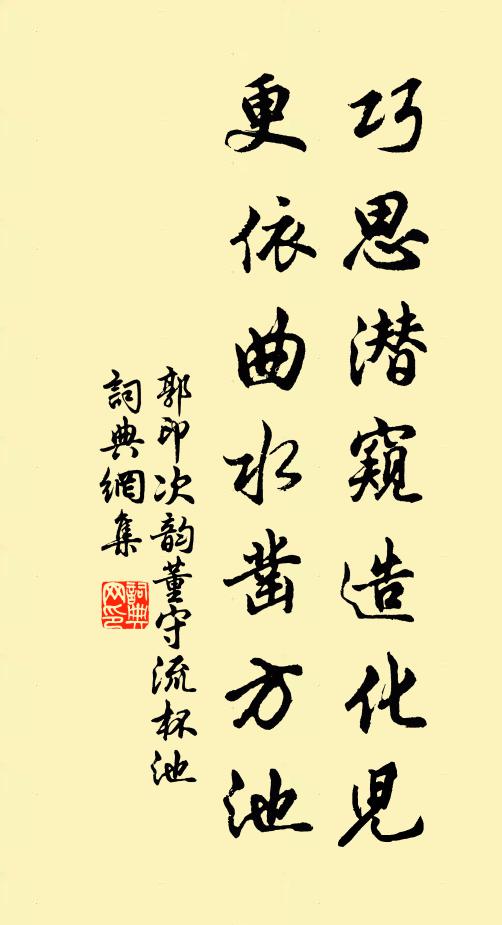 巧思潜窥造化児
更依曲水凿方池
郭印次韵董守流杯池
詞典網集
詞典网印